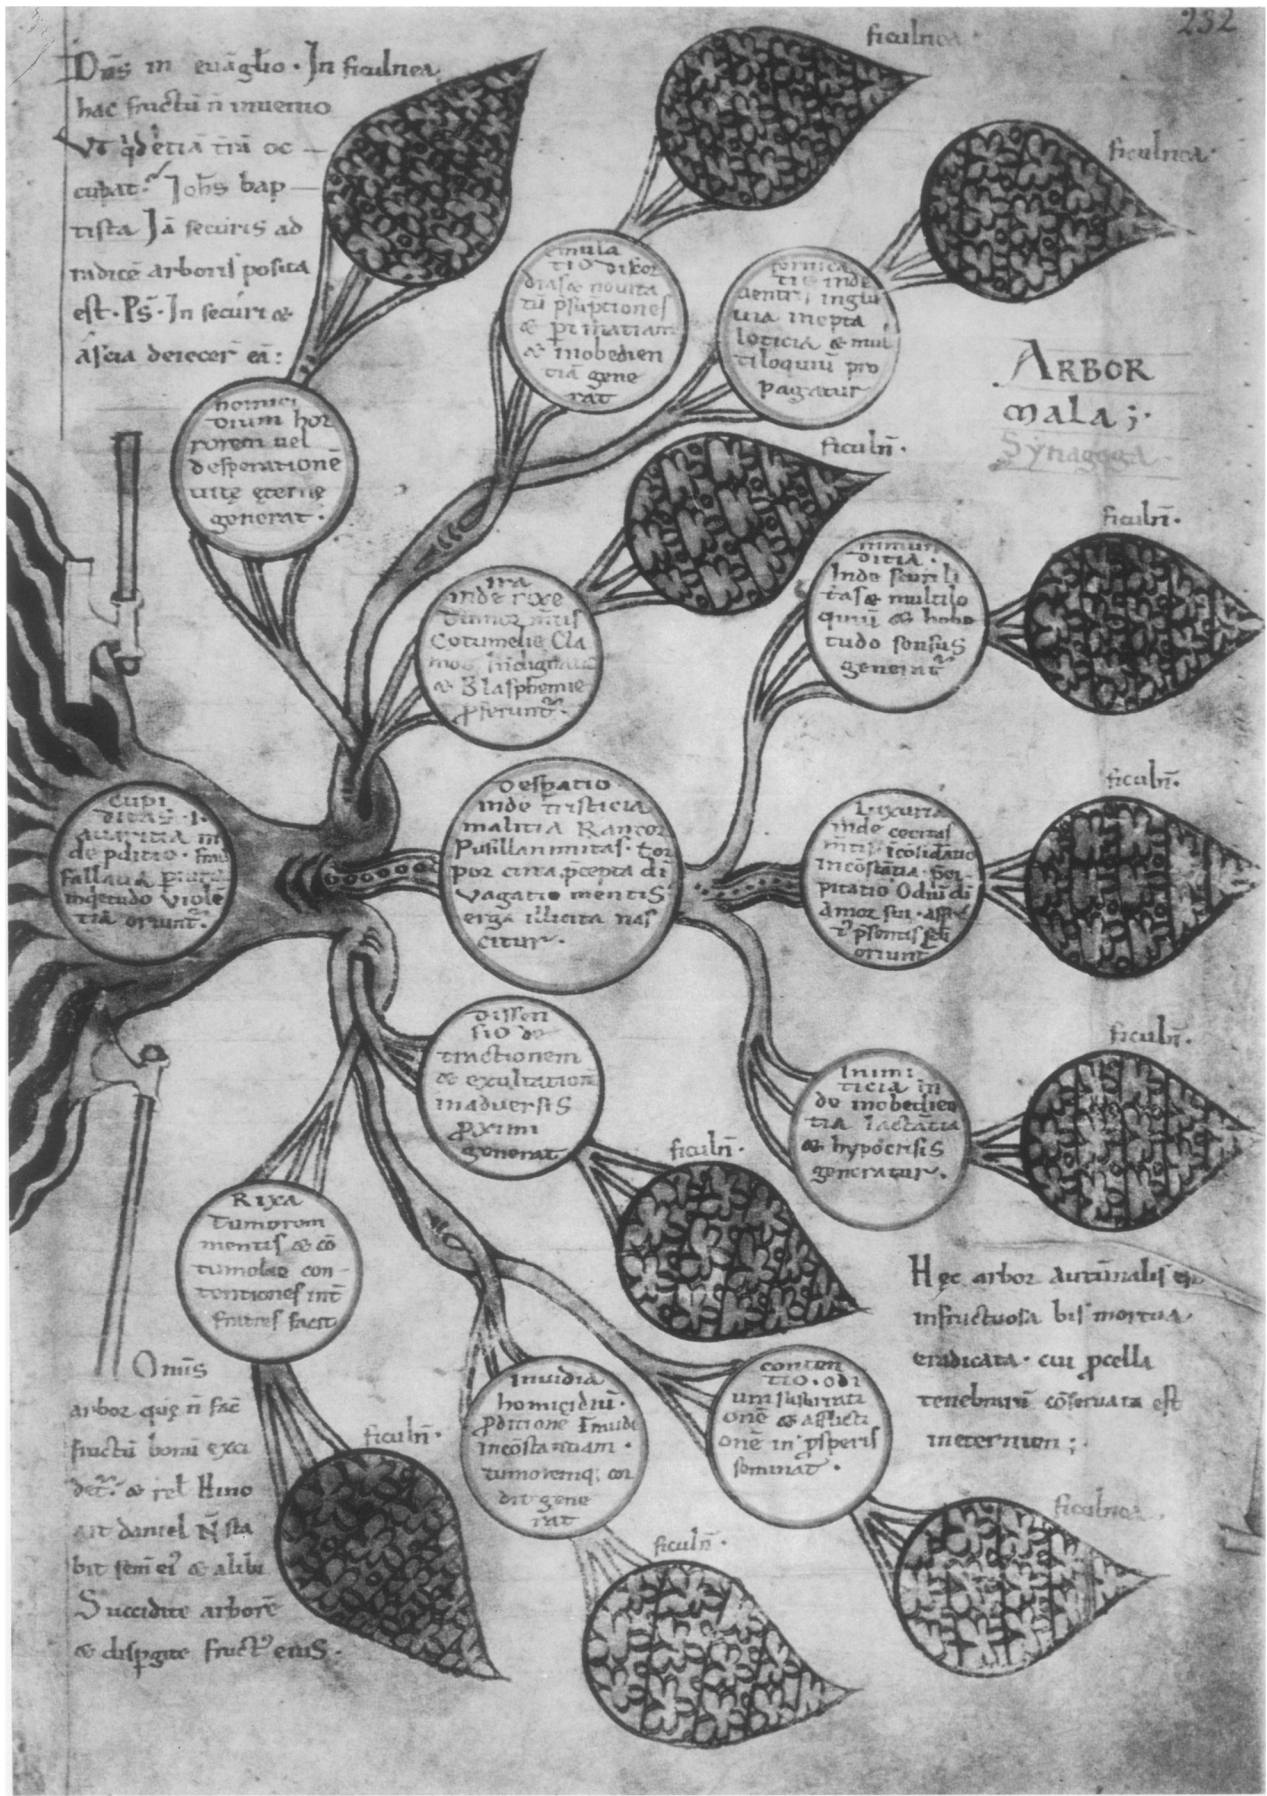 232
Dns in euaglio · In ficulnea
hac fructu n inuenio
Vt qd etia tra oc
cupat. Johs bap
tista Ja securis ad
radice arboris posita
est · Ps · In securi &
ascia deiecer ea :
ficulnea
ficulnea
ARBOR
MALA ;·
Synagoga
homici
dium hor
rorem uel
desperatione
uitę eterne
generat ·
emula
tio discor
dias & nouita
tu psuptiones
&
& inobedien
tia gene
rat
fornica
tio inde
uentris inglu
uia inepta
leticia & mul
tiloquiu pro
pagatur
ficuln ·
ira
inde rixe
tumor mtis
Cotumelie Cla
mor indignatio
& Blasphemie
pferunt
ficuln ·
inmun
ditia ·
Inde scurili
tas & multilo
quiu & hebe
tudo sensus
generat
Cupi
ditas · i ·
auaritia in
de pditio · frau
fallatia piuria
inqetudo uiole
tia oriunt ·
despatio
inde tristicia
malitia Rancor
Pusillanimitas · tor
por circa pcepta di
Vagatio mentis
erga illicita nas
citur ·
ficuln ·
Luxuria
inde cecitas
mtis icosidatio
incostatia pci
pitatio Odiu di
Amor sui · affec
psentis scli
oriunt
dissen
sio de
tractionem
& exultation
in aduersis
pximi
generat
ficuln ·
Inimi
ticia in
de inobedien
tia iactatia
& hypocrisis
generatur ·
ficuln ·
Rixa
tumorem
mentis & co
tumelias con
tentiones int
fratres facit
Hęc arbor autumnalis est
infructuosa bis mortua
eradicata · cui pcella
tenebraru coseruata est
ineternum ;·
ficuln ·
Inuidia
homicidiu ·
pditione
incostantiam ·
tumoremq; cor
dis gene
rat
conten
tio · odi
um
one & afflicti
one in psperis
seminat ·
Omis
arbor quę n fac
fructu bonu exci
det & rel Hinc
ait daniel N sta
bit sem ei & alibi
Succidite arbore
& dispgite fruct eius ·
ficuln ·
ficulnea